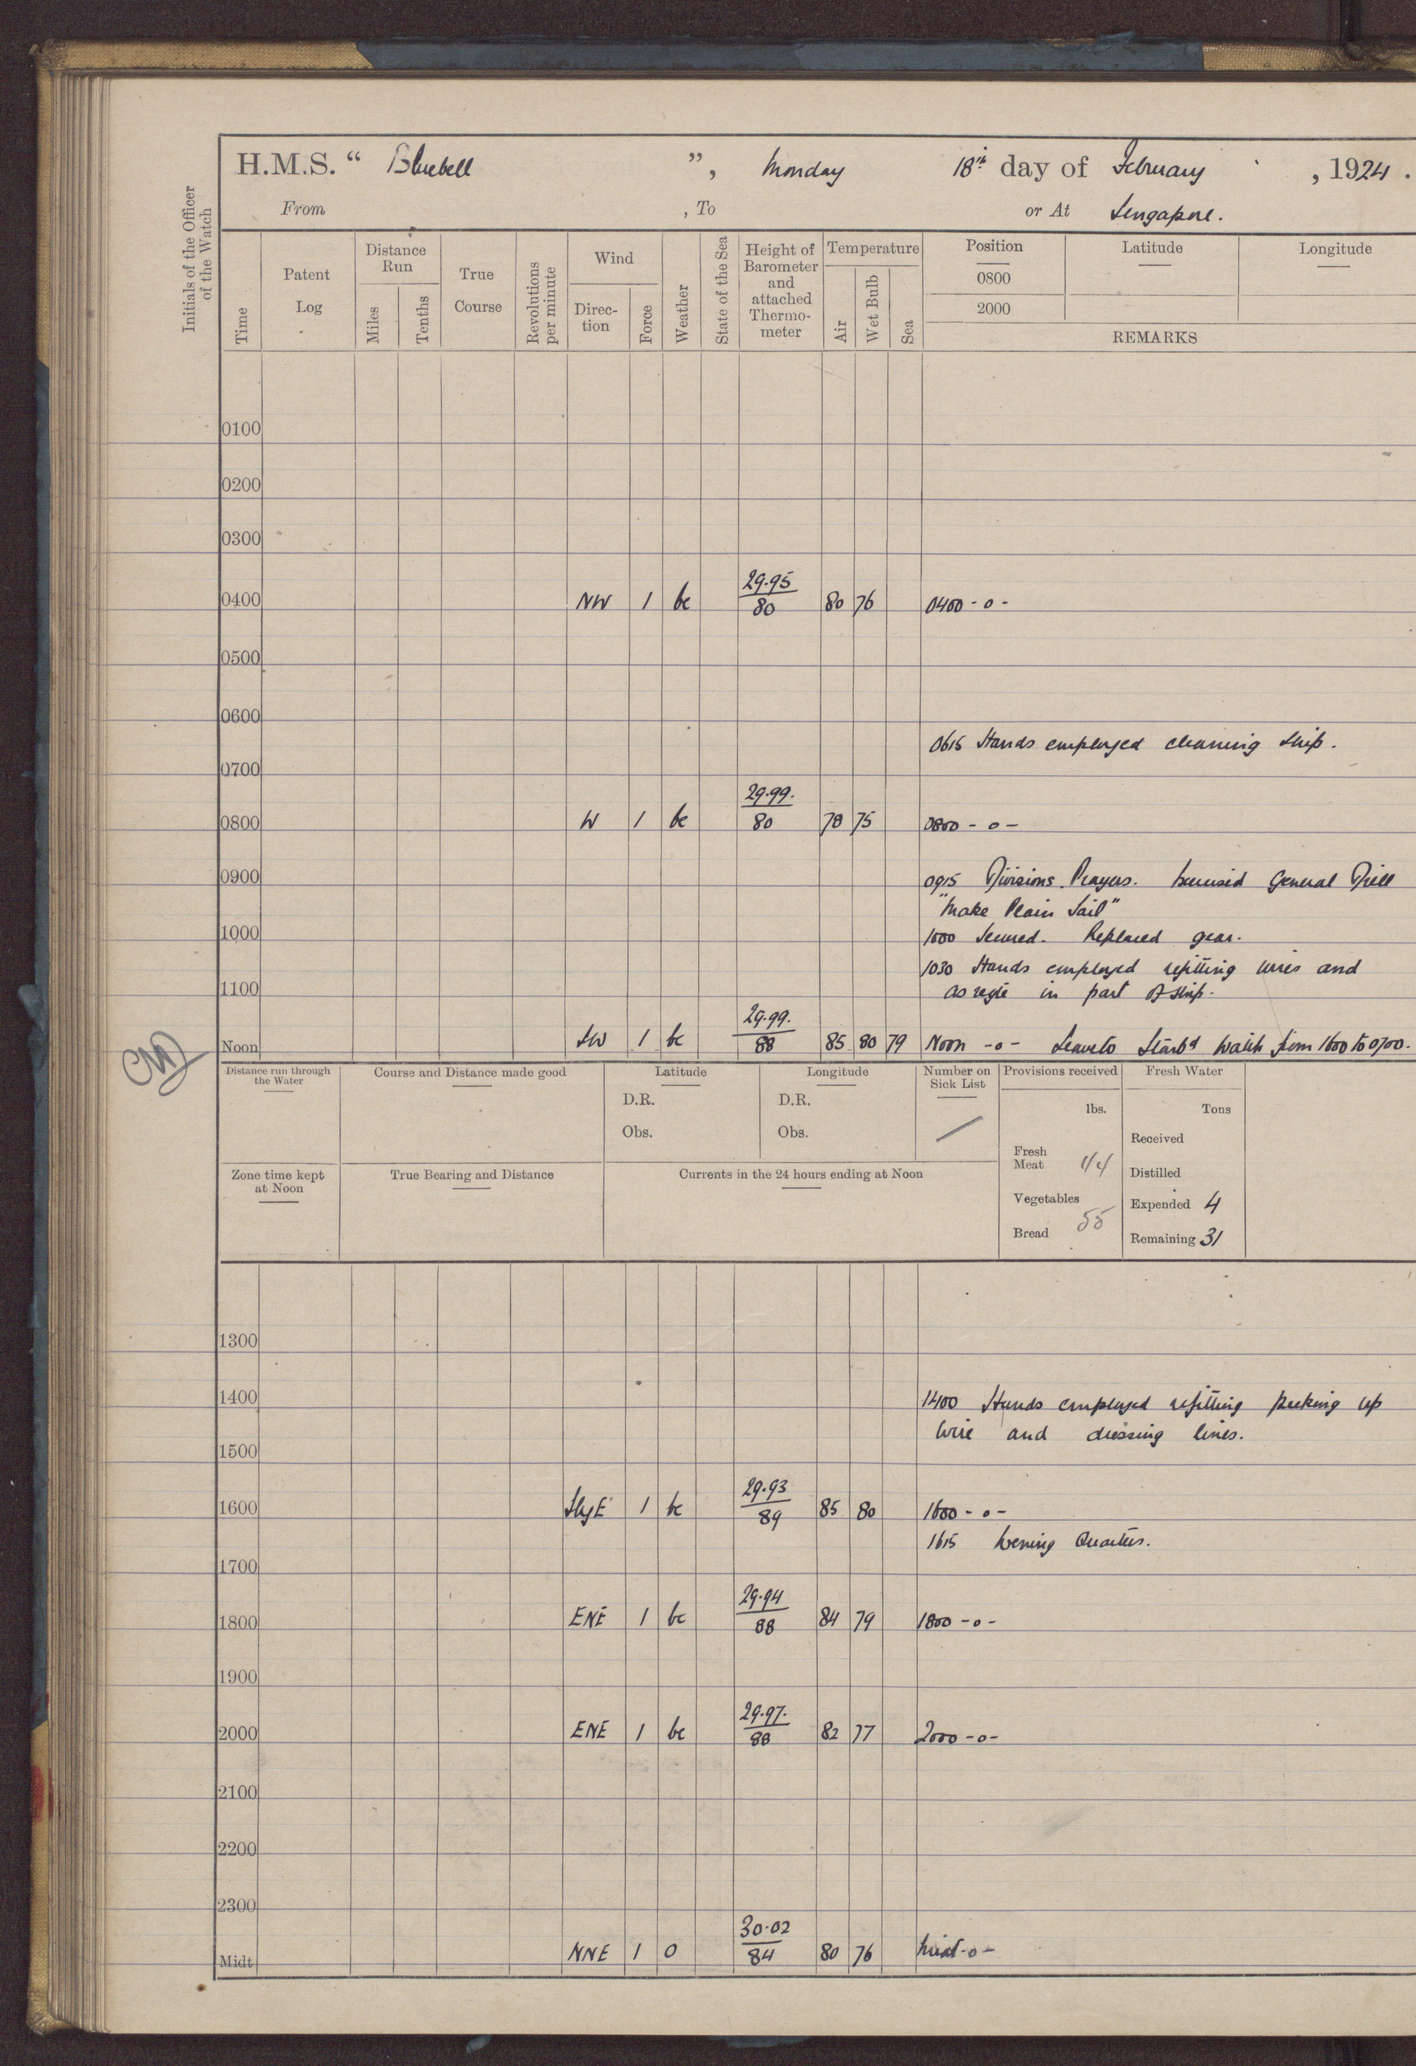 H.M.S. “ Bluebell ”, Monday 18th day of February , 1924 .
From , To or At Singapore.
Initials of the Officer of the Watch
Time
Patent Log
Distance Run
Miles
Tenths
True Course
Revolutions per minute
Wind
Direc- tion
Force
Weather
State of the Sea
Height of Barometer and attached Thermo- meter
Temperature
Air
Wet Bulb
Sea
Position
0800
2000
Latitude
Longitude
REMARKS
0100
0200
0300
29.95
0400 NW 1 bc 80 80 76 0400 - o -
0500
0600
0615 Hands employed cleaning ship.
0700
29.99.
0800 W 1 bc 80 78 75 0800 - o -
0900 0915 Divisions. Prayers. Exercised General Drill
"Make Plain Sail"
1000 1000 Secured. Replaced gear.
1030 Hands employed refitting wires and
1100 as reqte in part of ship.
29.99.
Noon SW 1 bc 88 85 80 79 Noon - o - Leave to Starbd Watch from 1600 to 0700.
Distance run through the Water
Course and Distance made good
Latitude
D.R.
Obs.
Longitude
D.R.
Obs.
Number on Sick List
/
Provisions received
lbs.
Fresh Meat
Vegetables
Bread 55
Fresh Water
Tons
Received
Distilled
Expended 4
Remaining 31
Zone time kept at Noon
True Bearing and Distance
Currents in the 24 hours ending at Noon
1300
1400 1400 Hands employed refitting picking up
wire and dressing lines.
1500
29.93
1600 SbyE 1 bc 89 85 80 1600 - o -
1615 Evening Quarters.
1700
29.94
1800 ENE 1 bc 88 84 79 1800 - o -
1900
29.97.
2000 ENE 1 bc 88 82 77 2000 - o -
2100
2200
2300
30.02
Midt NNE 1 o 84 80 76 Midt - o -